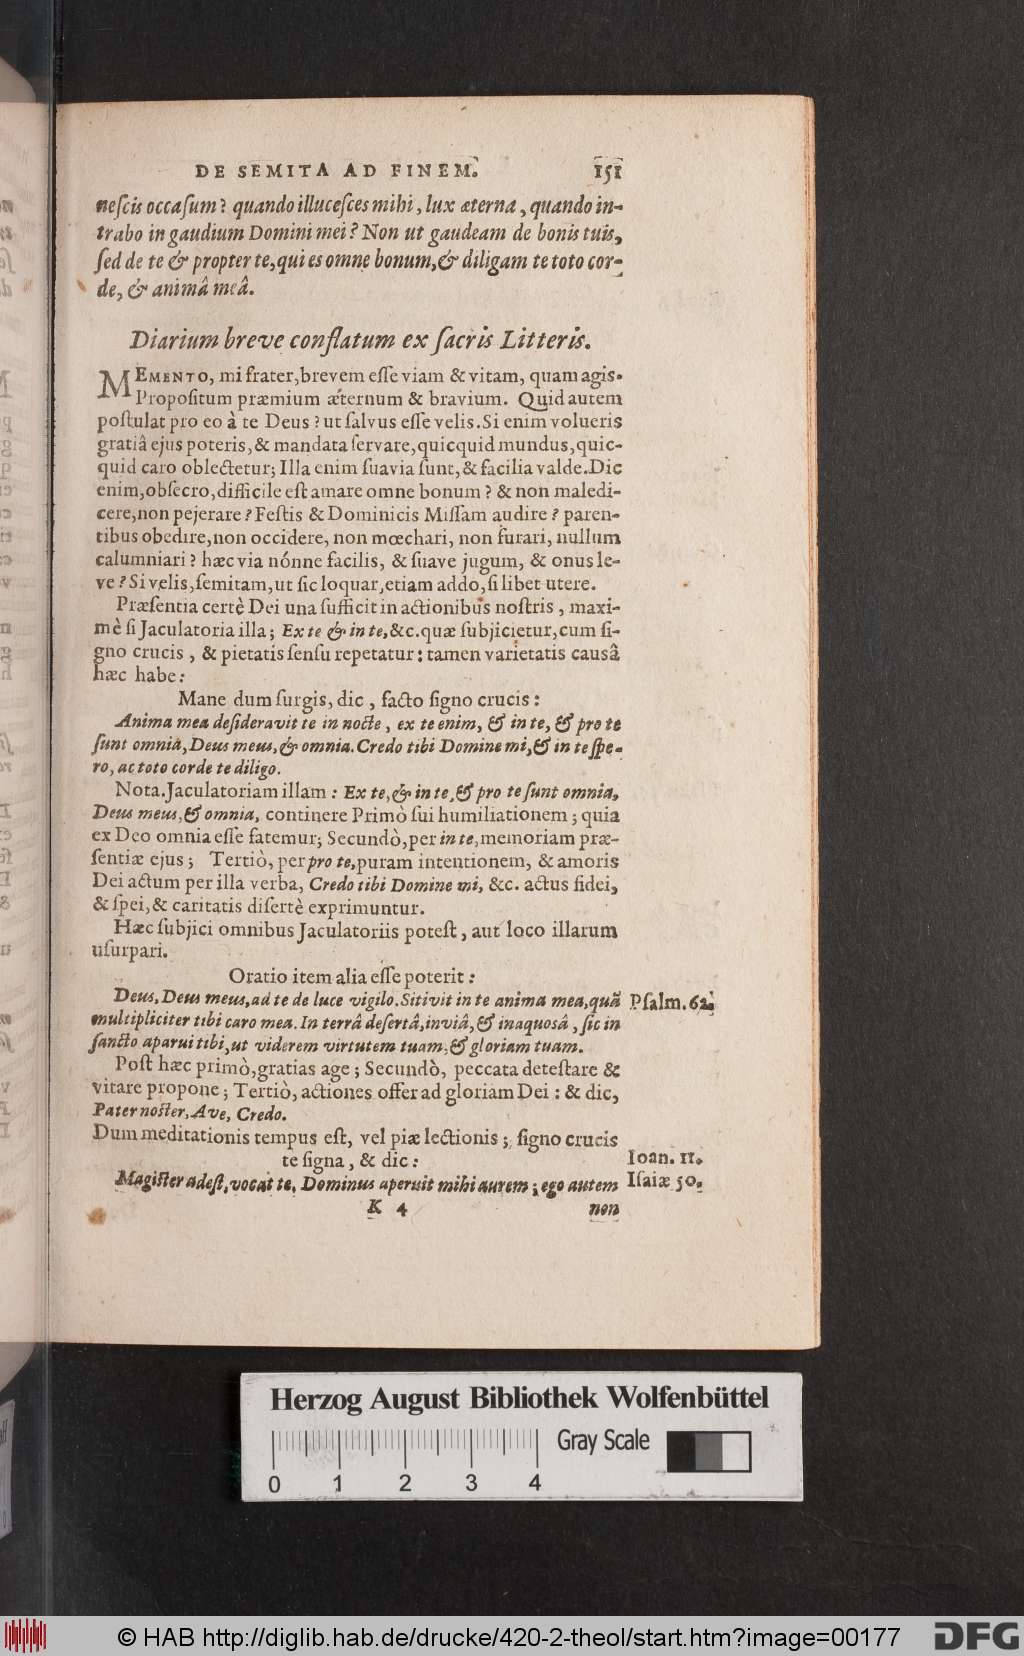 DE SEMITA AD FINEM. 151
neſcis occaſum? quando illuceſces mihi, lux æterna, quando in-
trabo in gaudium Domini mei? Non ut gaudeam de bonis tuis,
ſed de te & propter te, qui es omne bonum, & diligam te toto cor-
de, & animâ meâ.
Diarium breve conflatum ex ſacris Litteris.
MEMENTO, mi frater, brevem eſſe viam & vitam, quam agis.
Propoſitum præmium æternum & bravium. Quid autem
poſtulat pro eo à te Deus? ut ſalvus eſſe velis. Si enim volueris
gratiâ ejus poteris, & mandata ſervare, quicquid mundus, quic-
quid caro oblectetur; Illa enim ſuavia ſunt, & facilia valde. Dic
enim, obſecro, difficile eſt amare omne bonum? & non maledi-
cere, non pejerare? Feſtis & Dominicis Miſſam audire? paren-
tibus obedire, non occidere, non mœchari, non furari, nullum
calumniari? hæc via nónne facilis, & ſuave jugum, & onus le-
ve? Si velis, ſemitam, ut ſic loquar, etiam addo, ſi libet utere.
Præſentia certè Dei una ſufficit in actionibus noſtris, maxi-
mè ſi Jaculatoria illa; Ex te & in te, &c. quæ ſubjicietur, cum ſi-
gno crucis, & pietatis ſenſu repetatur: tamen varietatis causâ
hæc habe:
Mane dum ſurgis, dic, facto ſigno crucis:
Anima mea deſideravit te in nocte, ex te enim, & in te, & pro te
ſunt omnia, Deus meus, & omnia. Credo tibi Domine mi, & in te ſpe-
ro, ac toto corde te diligo.
Nota. Jaculatoriam illam: Ex te, & in te, & pro te ſunt omnia,
Deus meus, & omnia, continere Primò ſui humiliationem; quia
ex Deo omnia eſſe fatemur; Secundò, per in te, memoriam præ-
ſentiæ ejus; Tertiò, per pro te, puram intentionem, & amoris
Dei actum per illa verba, Credo tibi Domine mi, &c. actus fidei,
& ſpei, & caritatis diſertè exprimuntur.
Hæc ſubjici omnibus Jaculatoriis poteſt, aut loco illarum
uſurpari.
Oratio item alia eſſe poterit:
Deus, Deus meus, ad te de luce vigilo. Sitivit in te anima mea, quã Pſalm. 62.
multipliciter tibi caro mea. In terrâ deſertâ, inviâ, & inaquosâ, ſic in
ſancto aparui tibi, ut viderem virtutem tuam, & gloriam tuam.
Poſt hæc primò, gratias age; Secundò, peccata deteſtare &
vitare propone; Tertiò, actiones offer ad gloriam Dei: & dic,
Pater noſter, Ave, Credo.
Dum meditationis tempus eſt, vel piæ lectionis; ſigno crucis
te ſigna, & dic: Ioan. 11.
Magiſter adeſt, vocat te, Dominus aperuit mihi aurem; ego autem Iſaiæ 50.
K 4 non
Herzog August Bibliothek Wolfenbüttel
Gray Scale
0 1 2 3 4
© HAB http://diglib.hab.de/drucke/420-2-theol/start.htm?image=00177
DFG